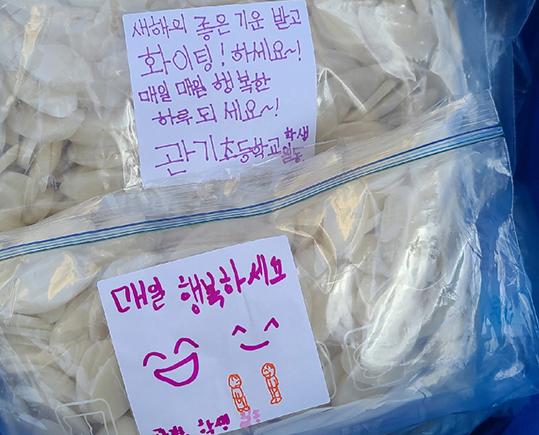 새해의 좋은 기운 받고
화이팅! 하세요~!
매일 매일 행복한
하루 되세요~!
관기초등학교 학생
일동
매일 행복하세요